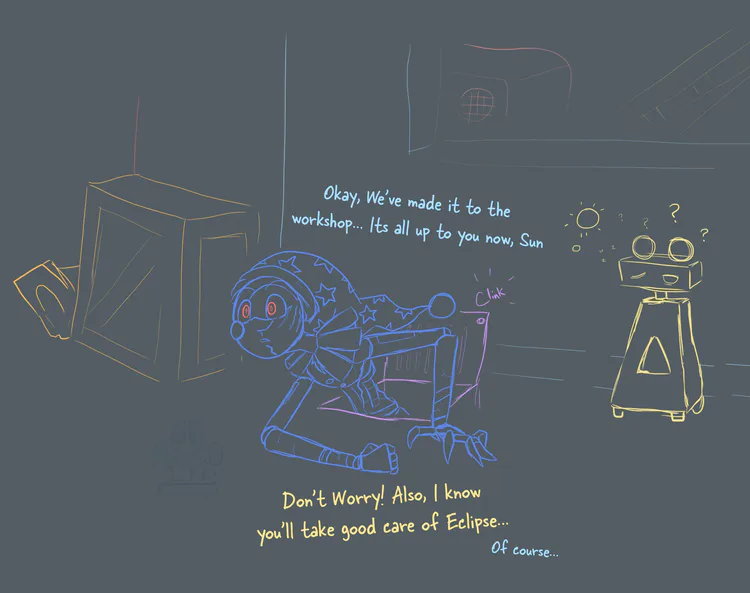 Okay, We've made it to the
workshop... Its all up to you now, Sun
? ? ? ?
Clink
Don't Worry! Also, I know
you'll take good care of Eclipse...
Of course...